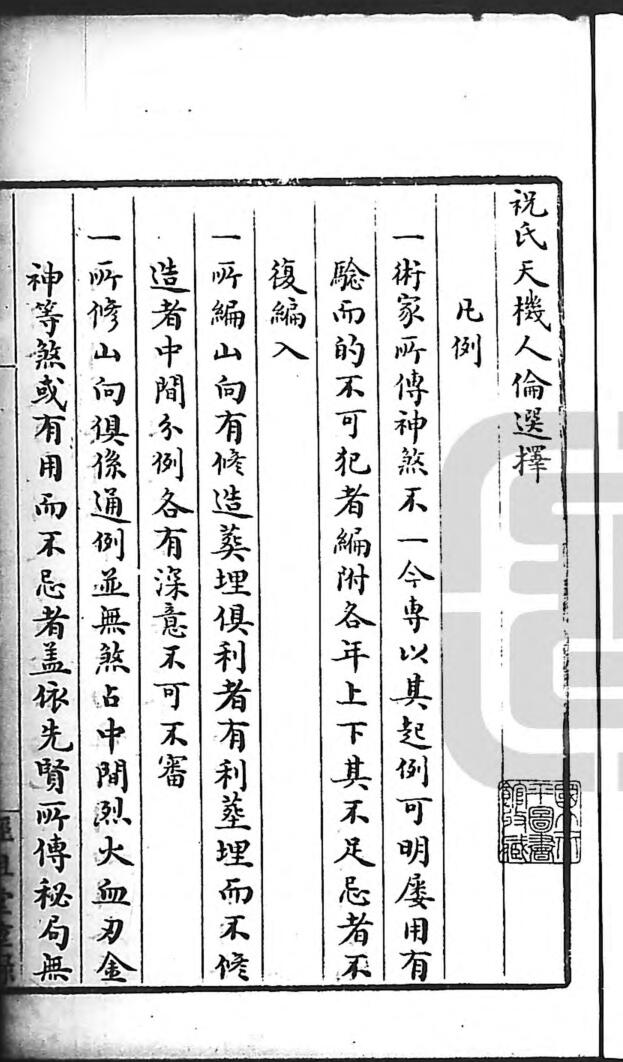 祝氏天機人倫選擇
凡例
一術家所傳神煞不一今専以其起例可明屢用有
驗而的不可犯者編附各年上下其不足忌者不
復編入
一所編山向有修造葬埋俱利者有利塟埋而不修
造者中間分例各有深意不可不審
一所修山向俱係通例並無煞占中間烈火血刃金
神等煞或有用而不忌者盖依先賢所傳秘局無
國立北
平圖書
館收藏